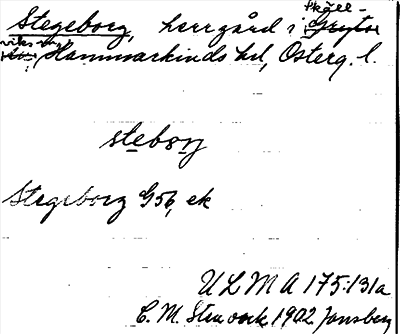 Stegeborg, herrgård i Skäll-
viks sn, Hammarkinds hd, Österg. l.
stebory
Stegeborg G56, ek
ULMA 175:131a
C. M. Stenbock 1902 Jonsberg